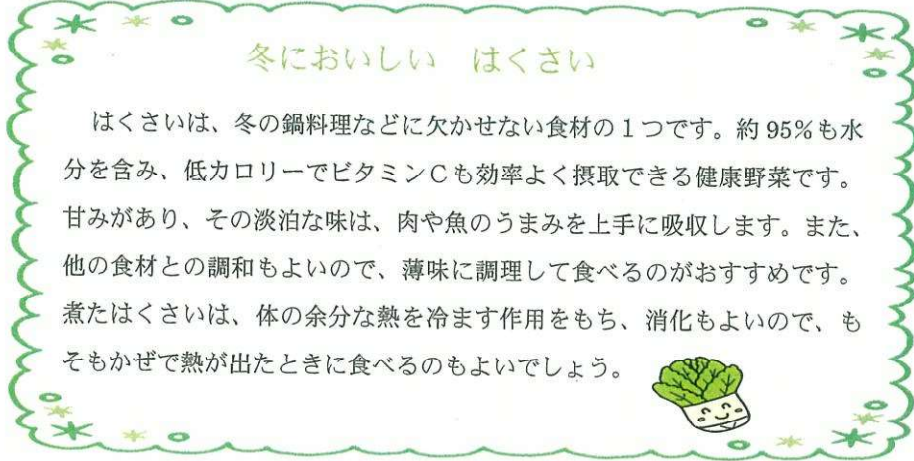 冬においしい　はくさい
はくさいは、冬の鍋料理などに欠かせない食材の１つです。約 95%も水
分を含み、低カロリーでビタミンＣも効率よく摂取できる健康野菜です。
甘みがあり、その淡泊な味は、肉や魚のうまみを上手に吸収します。また、
他の食材との調和もよいので、薄味に調理して食べるのがおすすめです。
煮たはくさいは、体の余分な熱を冷ます作用をもち、消化もよいので、も
そもかぜで熱が出たときに食べるのもよいでしょう。